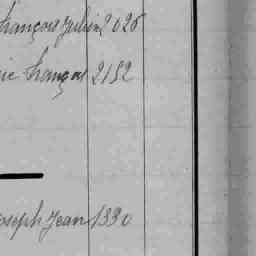 François Julien 2026
ric François 2152
oseph Jean 1330